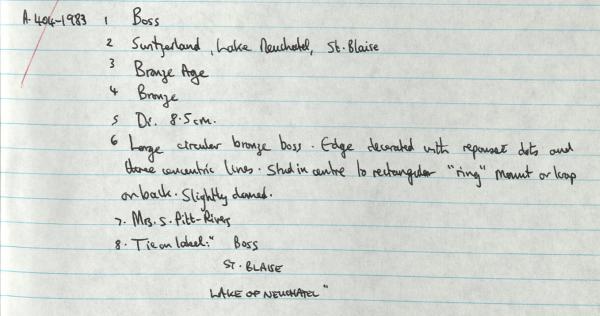 A.404-1983 1 Boss
2 Switzerland, Lake Neuchatel, St. Blaise
3 Bronze Age
4 Bronze
5 Di. 8.5cm.
6 Large circular bronze boss. Edge decorated with repoussé dots and
three concentric lines. Stud in centre to rectangular "ring" mount or loop
on back. Slightly domed.
7. Mrs. S. Pitt-Rivers
8. Tie on label:" Boss
ST. BLAISE
LAKE OF NEUCHATEL"